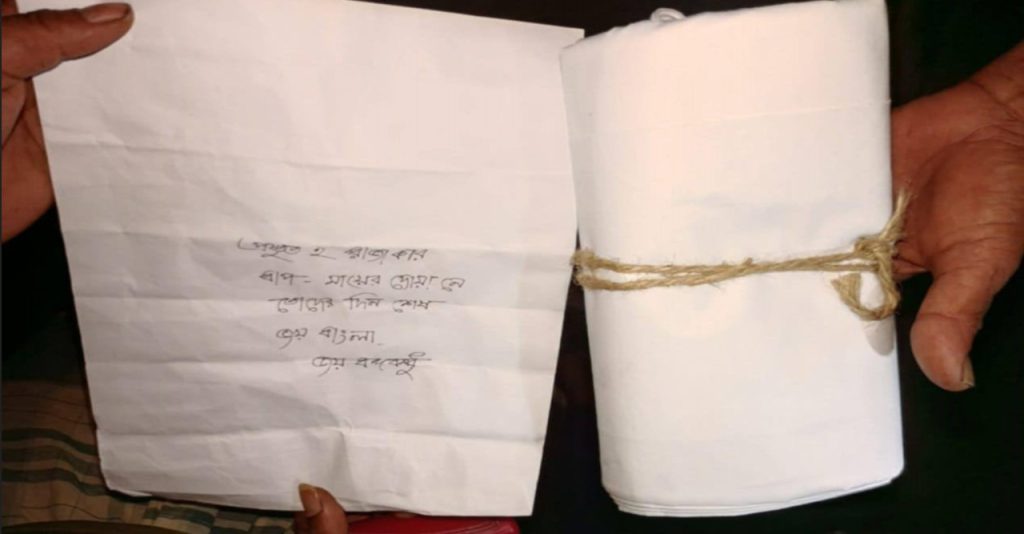 প্রস্তুত হ রাজাকার
বাপ- মায়ের দোয়া নে
তোদের দিন শেষ
জয় বাংলা.
জয় বঙ্গবন্ধু